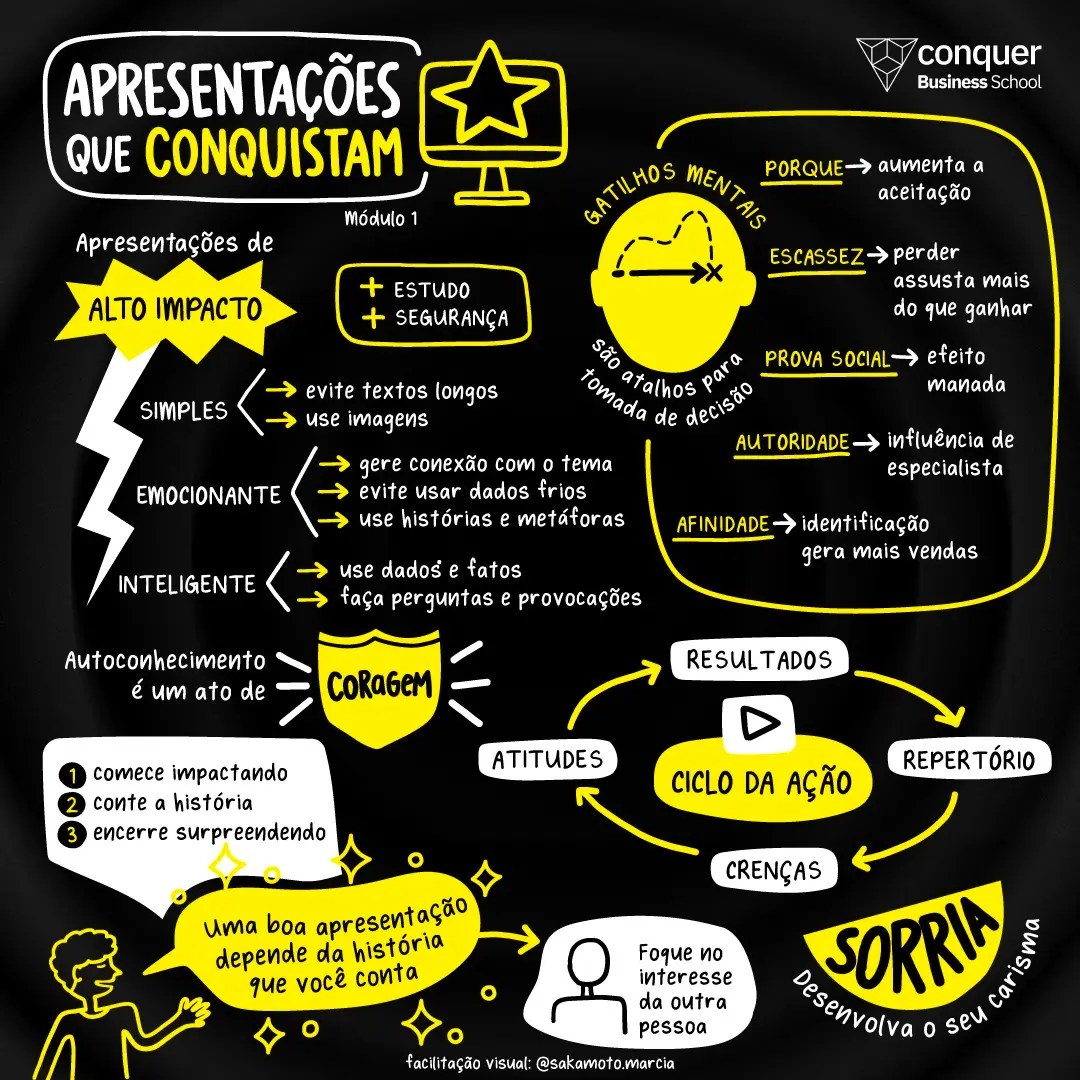 APRESENTAÇÕES
QUE CONQUISTAM
Módulo 1
conquer
Business School
Apresentações de
ALTO IMPACTO
+ ESTUDO
+ SEGURANÇA
SIMPLES
→ evite textos longos
→ use imagens
EMOCIONANTE
→ gere conexão com o tema
→ evite usar dados frios
→ use histórias e metáforas
INTELIGENTE
→ use dados e fatos
→ faça perguntas e provocações
GATILHOS MENTAIS
são atalhos para
tomada de decisão
PORQUE → aumenta a
aceitação
ESCASSEZ → perder
assusta mais
do que ganhar
PROVA SOCIAL → efeito
manada
AUTORIDADE → influência de
especialista
AFINIDADE → identificação
gera mais vendas
Autoconhecimento
é um ato de
CORAGEM
RESULTADOS
REPERTÓRIO
CRENÇAS
ATITUDES
CICLO DA AÇÃO
1 comece impactando
2 conte a história
3 encerre surpreendendo
Uma boa apresentação
depende da história
que você conta
Foque no
interesse
da outra
pessoa
SORRIA
Desenvolva o seu carisma
facilitação visual: @sakamoto.marcia